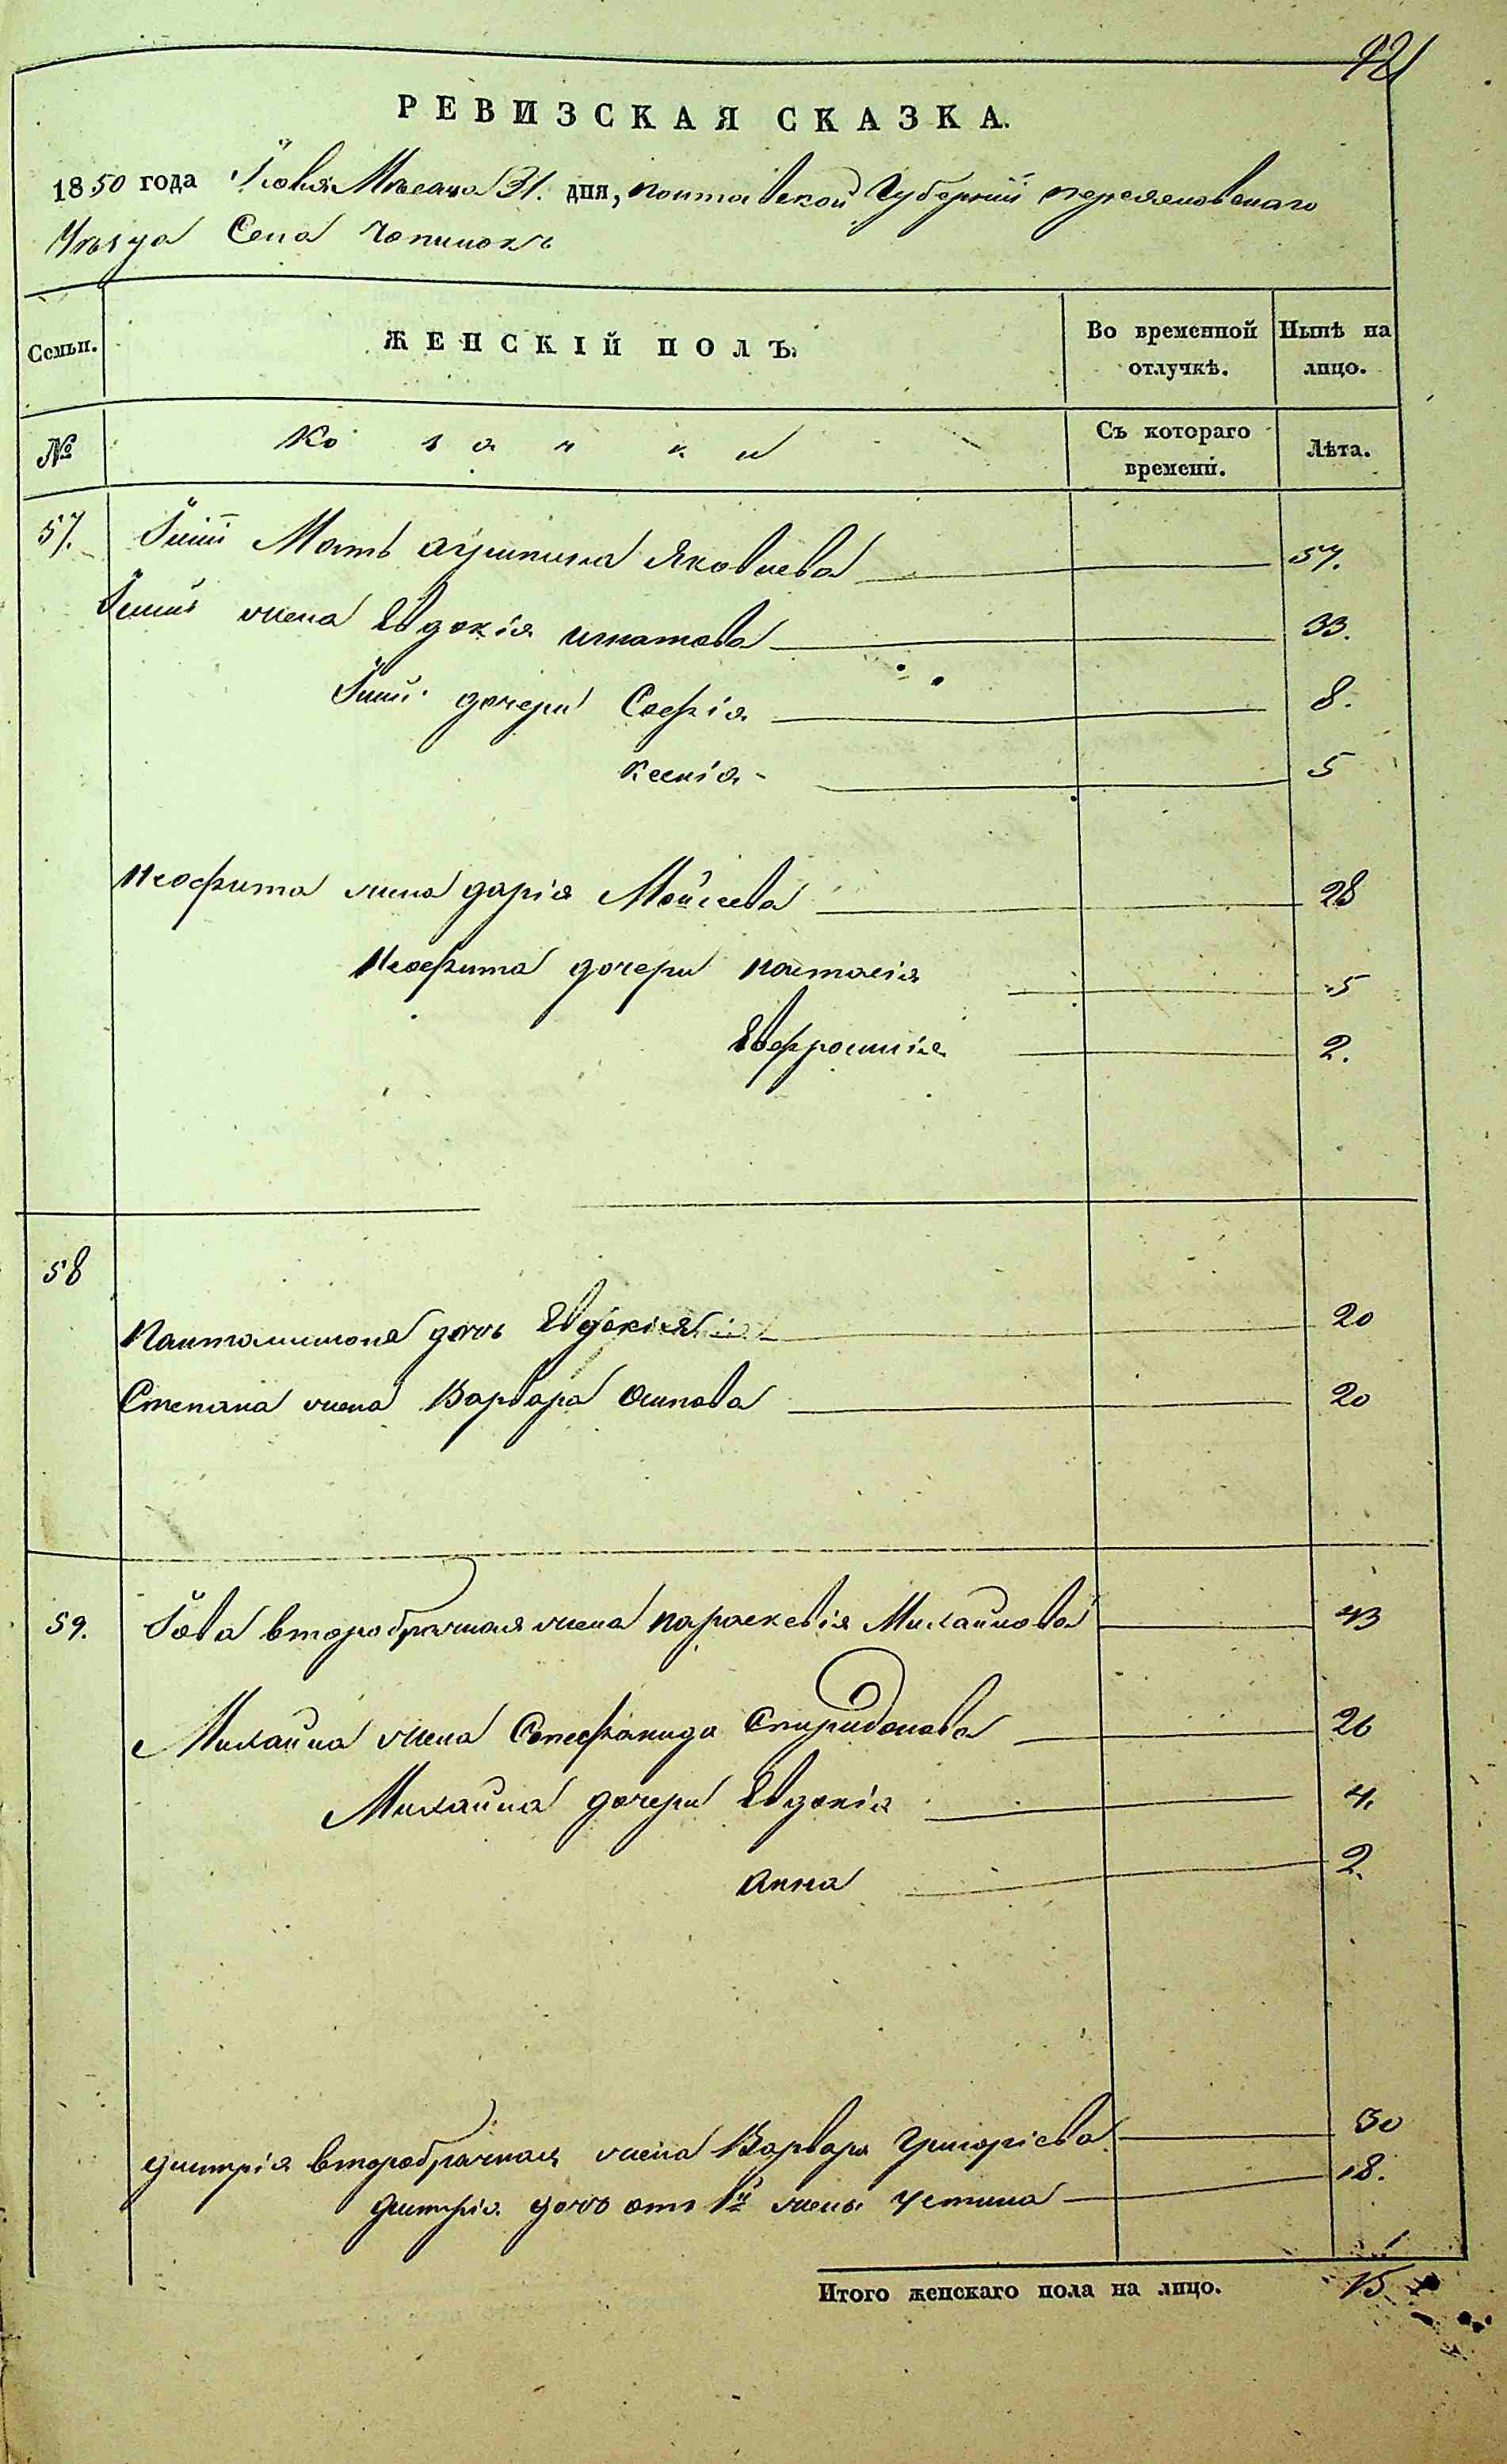 421
РЕВИЗСКАЯ СКАЗКА.
1850 года Іюля Мѣсяца 31. дня, Полтавской Губерніи Переяславскаго
Уѣзда Села Чопилокъ
Семьи. ЖЕНСКІЙ ПОЛЪ. Во временной отлучкѣ. Нынѣ на лицо.
№ Козачки Съ котораго времени. Лѣта.
57. Мать Агрипина Яковлева 57.
жена Евдокія Игнатова 33.
дочери Софія 8.
Ксенія 5
Неофита жена Дарія Мойсеева 28
Неофита дочери Настасія 5
Евфросинія 2.
58
Пантелимона дочь Евдокія 20
Степана жена Варвара Осипова 20
59. Іова второбрачная жена Параскевія Михайлова 43
Михайла жена Стефанида Спиридонова 26
Михайла дочери Евдокія 4.
Анна 2.
Дмитрія второбрачная жена Варвара Григоріева 30
Дмитрія дочь отъ 1й жены Устина 18.
Итого женскаго пола на лицо. 15